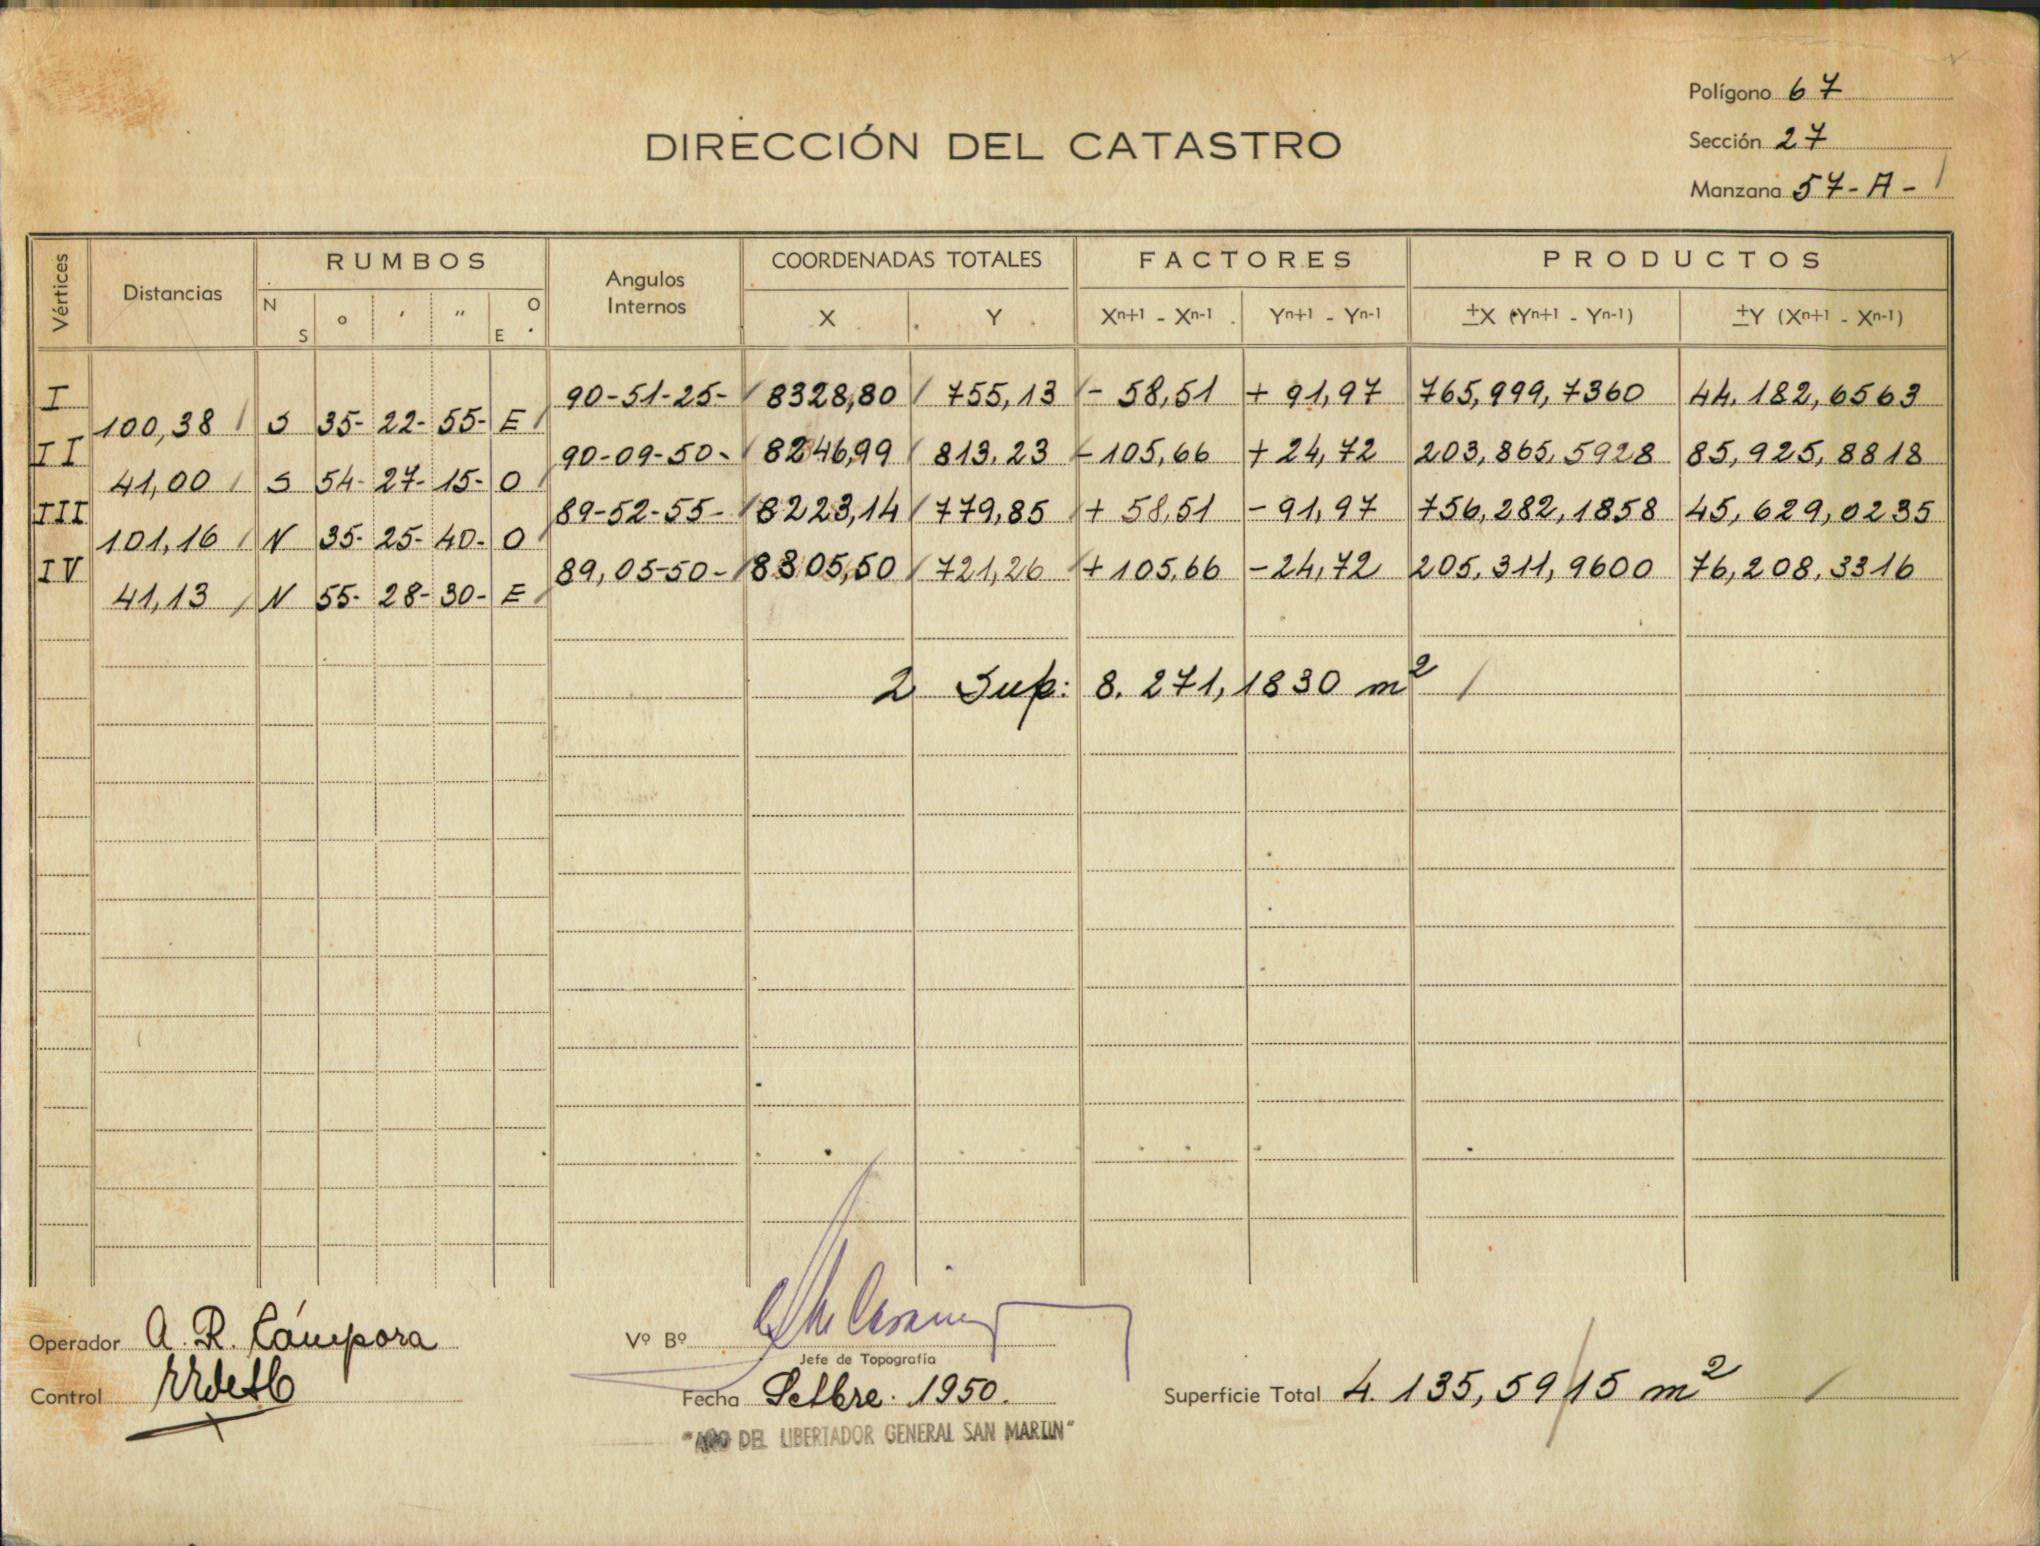 Polígono 67
DIRECCIÓN DEL CATASTRO
Sección 27
Manzana 57-A-
Vértices Distancias RUMBOS Angulos Internos COORDENADAS TOTALES FACTORES PRODUCTOS
N S ° ' " O E X Y Xn+1 - Xn-1 Yn+1 - Yn-1 ±X (Yn+1 - Yn-1) ±Y (Xn+1 - Xn-1)
I 90-51-25- 8328,80 755,13 - 58,51 + 91,97 765,999,7360 44.182,6563
100,38 S 35- 22- 55- E
II 90-09-50- 8246,99 813.23 - 105,66 + 24,72 203,865,5928 85,925,8818
41,00 S 54- 27- 15- O
III 89-52-55- 8223,14 779,85 + 58,51 - 91,97 756,282,1858 45,629,0235
101,16 N 35- 25- 40- O
IV 89,05-50- 8305,50 721,26 + 105,66 - 24,72 205.311,9600 76,208,3316
41,13 N 55- 28- 30- E
2 Sup: 8.271,1830 m²
Operador A. R. Cámpora
Vº Bº
Jefe de Topografía
Control
Fecha Setbre. 1950.
Superficie Total 4.135,5915 m²
"AÑO DEL LIBERTADOR GENERAL SAN MARTIN"